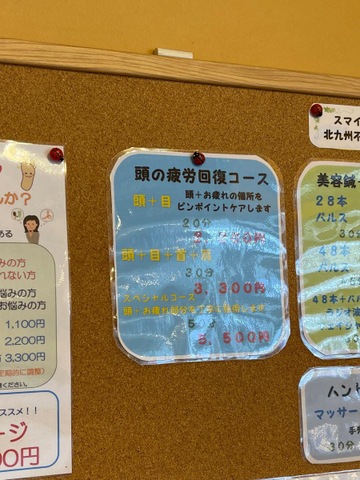 んか？
ある
みの方
れない方
悩みの方
お悩みの方
1,100円
2,200円
3,300円
定期的に調整)
ください。
ススメ！！
ージ
00円
頭の疲労回復コース
頭＋目 頭＋お疲れの個所を
ピンポイントケアします
20分
頭＋目＋首＋肩
30分
3,300円
スペシャルコース
50分
5,500円
スマイ
北九州不
美容鍼
28本
パルス
30分
48本
パルス
48本＋パ
ラジオ波
フェイシ
ハン
マッサー